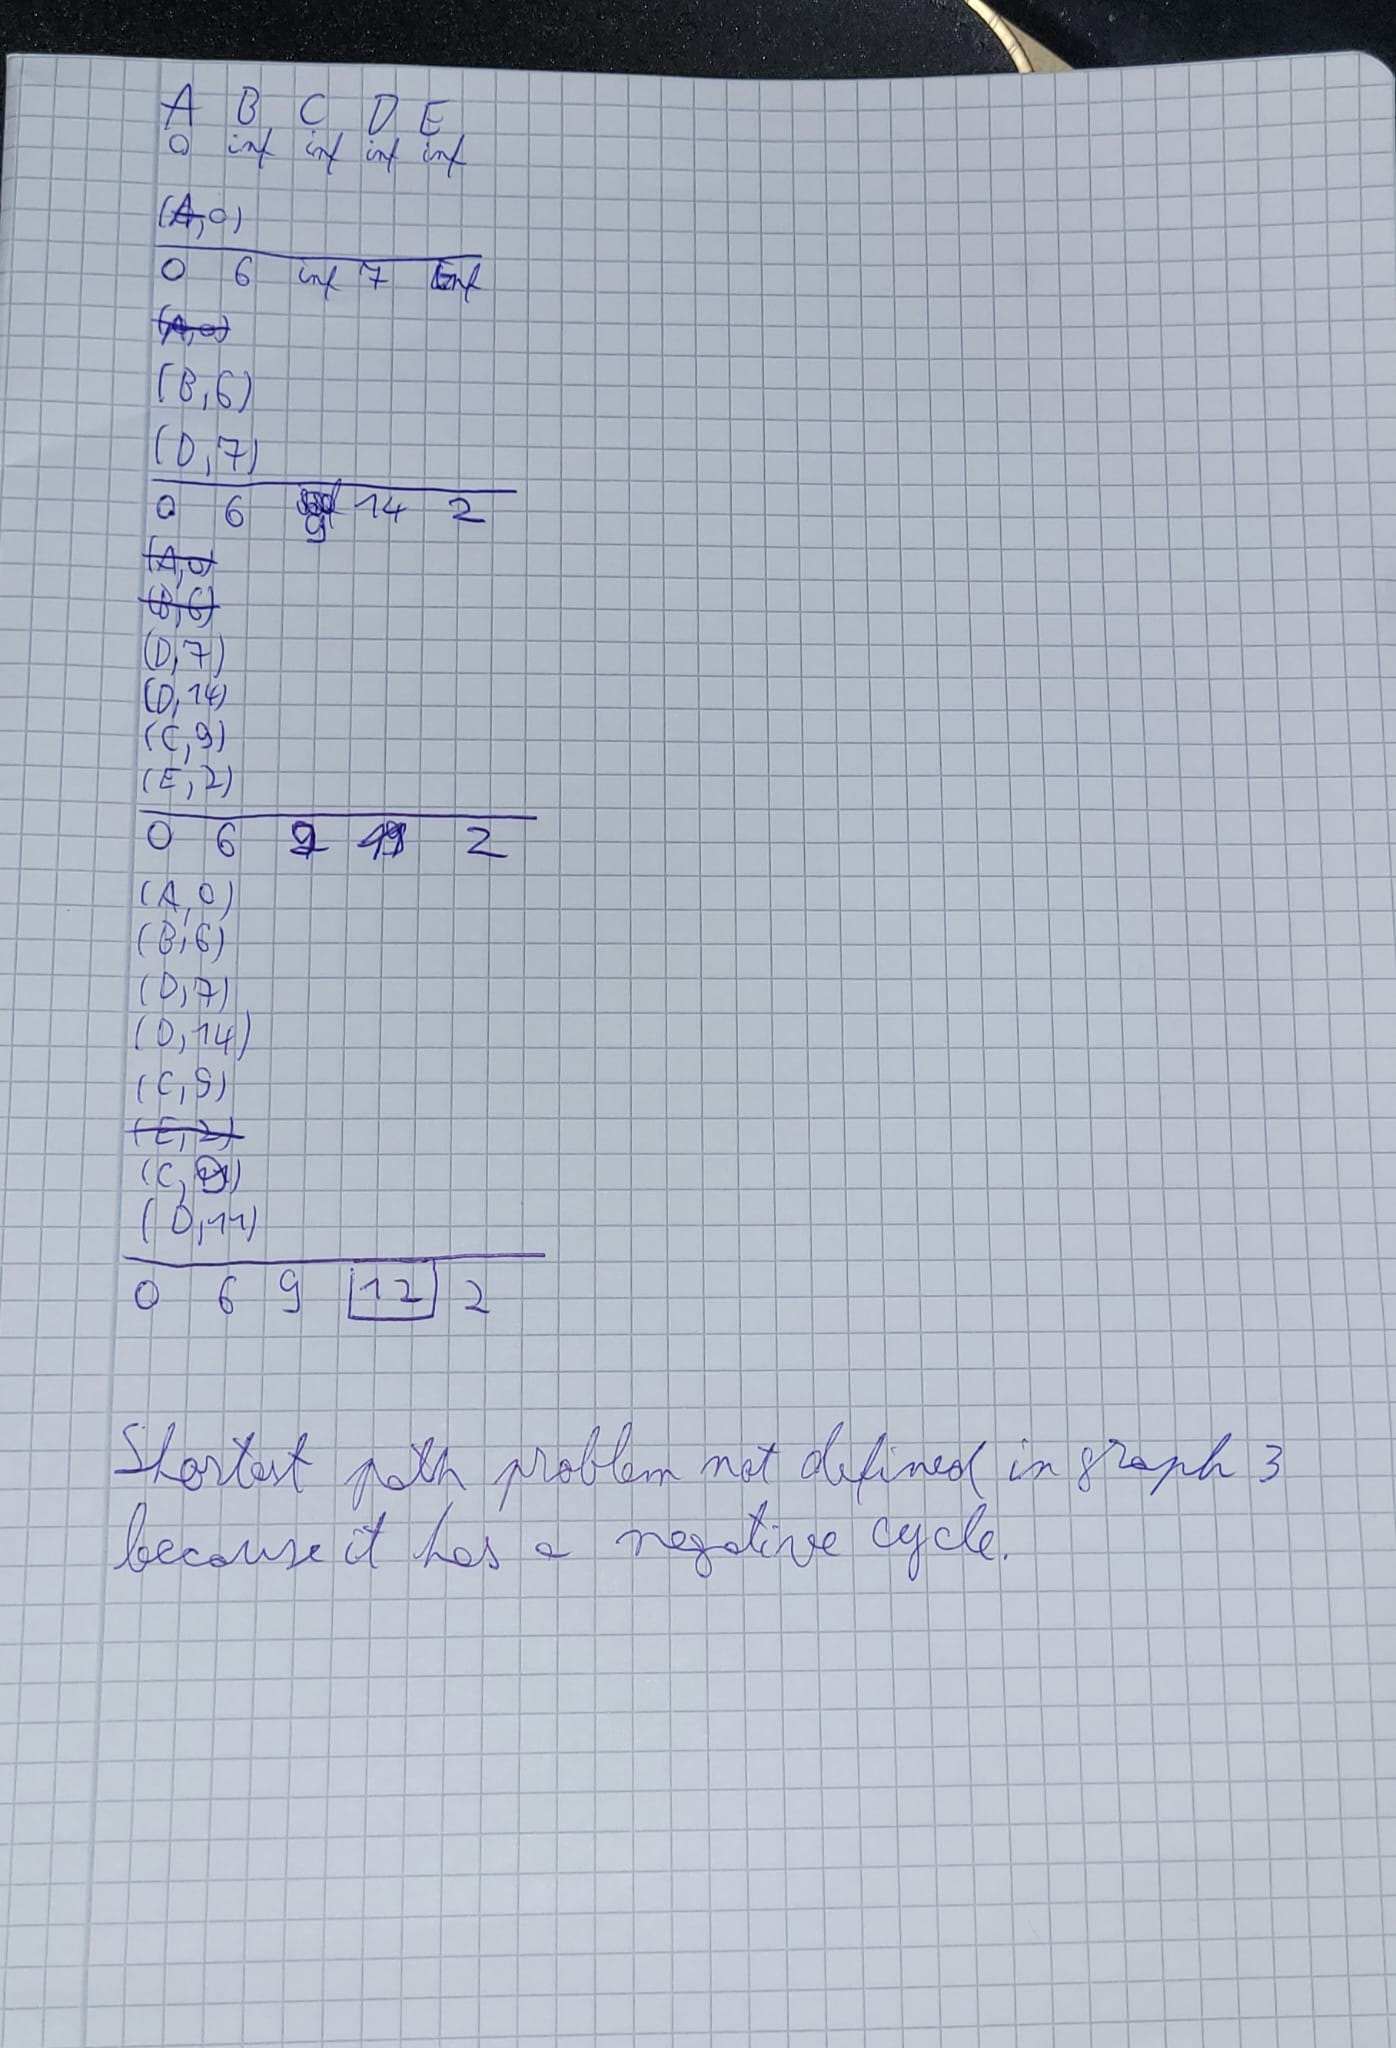 A B C D E
0 inf inf inf inf
(A,0)
0 6 inf 7 inf
(A,0)
(B,6)
(D,7)
0 6 9 14 2
(A,0)
(B,6)
(D,7)
(D,14)
(C,9)
(E,2)
0 6 2
(A,0)
(B,6)
(D,7)
(D,14)
(C,9)
(E,2)
(C, )
(D,11)
0 6 9 12 2
Shortest path problem not defined in graph 3
because it has a negative cycle.